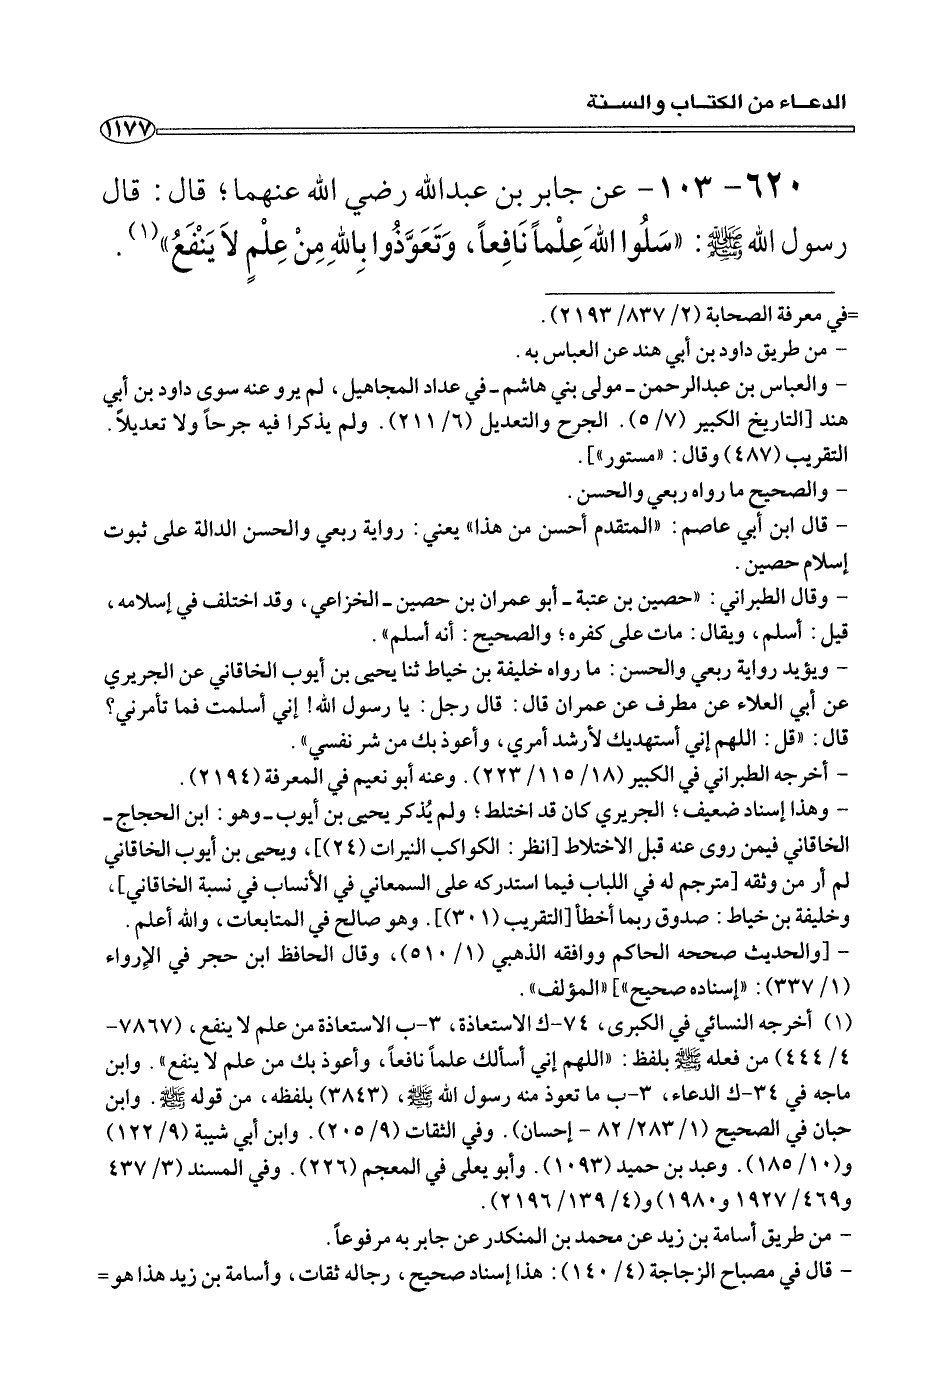 الدعـاء من الكتـاب والسـنة
١١٧٧
٦٢٠- ١٠٣- عن جابر بن عبدالله رضي الله عنهما؛ قال: قال
رسول الله ﷺ: «سَلُوا اللهَ عِلْماً نَافِعاً، وَتَعَوَّذُوا بِاللهِ مِنْ عِلْمٍ لاَ يَنْفَعُ»(١).
=في معرفة الصحابة (٢/ ٨٣٧/ ٢١٩٣).
- من طريق داود بن أبي هند عن العباس به.
- والعباس بن عبدالرحمن ـ مولى بني هاشم ـ في عداد المجاهيل، لم يرو عنه سوى داود بن أبي
هند [التاريخ الكبير (٧/ ٥). الجرح والتعديل (٦/ ٢١١). ولم يذكرا فيه جرحاً ولا تعديلاً.
التقريب (٤٨٧) وقال: «مستور»].
- والصحيح ما رواه ربعي والحسن.
- قال ابن أبي عاصم: «المتقدم أحسن من هذا» يعني: رواية ربعي والحسن الدالة على ثبوت
إسلام حصين.
- وقال الطبراني: «حصين بن عتبة ـ أبو عمران بن حصين ـ الخزاعي، وقد اختلف في إسلامه،
قيل: أسلم، ويقال: مات على كفره؛ والصحيح: أنه أسلم».
- ويؤيد رواية ربعي والحسن: ما رواه خليفة بن خياط ثنا يحيى بن أيوب الخاقاني عن الجريري
عن أبي العلاء عن مطرف عن عمران قال: قال رجل: يا رسول الله! إني أسلمت فما تأمرني؟
قال: «قل: اللهم إني أستهديك لأرشد أمري، وأعوذ بك من شر نفسي».
- أخرجه الطبراني في الكبير (١٨/ ١١٥/ ٢٢٣). وعنه أبو نعيم في المعرفة (٢١٩٤).
- وهذا إسناد ضعيف؛ الجريري كان قد اختلط؛ ولم يُذكر يحيى بن أيوب ـ وهو: ابن الحجاج ـ
الخاقاني فيمن روى عنه قبل الاختلاط [انظر: الكواكب النيرات (٢٤)]، ويحيى بن أيوب الخاقاني
لم أر من وثقه [مترجم له في اللباب فيما استدركه على السمعاني في الأنساب في نسبة الخاقاني]،
وخليفة بن خياط: صدوق ربما أخطأ [التقريب (٣٠١)]. وهو صالح في المتابعات، والله أعلم.
- [والحديث صححه الحاكم ووافقه الذهبي (١/ ٥١٠)، وقال الحافظ ابن حجر في الإرواء
(١/ ٣٣٧): «إسناده صحيح»] «المؤلف».
(١) أخرجه النسائي في الكبرى، ٧٤-ك الاستعاذة، ٣-ب الاستعاذة من علم لا ينفع، (٧٨٦٧-
٤/ ٤٤٤) من فعله ﷺ بلفظ: «اللهم إني أسألك علماً نافعاً، وأعوذ بك من علم لا ينفع». وابن
ماجه في ٣٤-ك الدعاء، ٣-ب ما تعوذ منه رسول الله ﷺ، (٣٨٤٣) بلفظه، من قوله ﷺ. وابن
حبان في الصحيح (١/ ٢٨٣/ ٨٢ - إحسان). وفي الثقات (٩/ ٢٠٥). وابن أبي شيبة (٩/ ١٢٢)
و(١٠/ ١٨٥). وعبد بن حميد (١٠٩٣). وأبو يعلى في المعجم (٢٢٦). وفي المسند (٣/ ٤٣٧
و٤٦٩/ ١٩٢٧ و١٩٨٠) و(٤/ ١٣٩/ ٢١٩٦).
- من طريق أسامة بن زيد عن محمد بن المنكدر عن جابر به مرفوعاً.
- قال في مصباح الزجاجة (٤/ ١٤٠): هذا إسناد صحيح، رجاله ثقات، وأسامة بن زيد هذا هو=